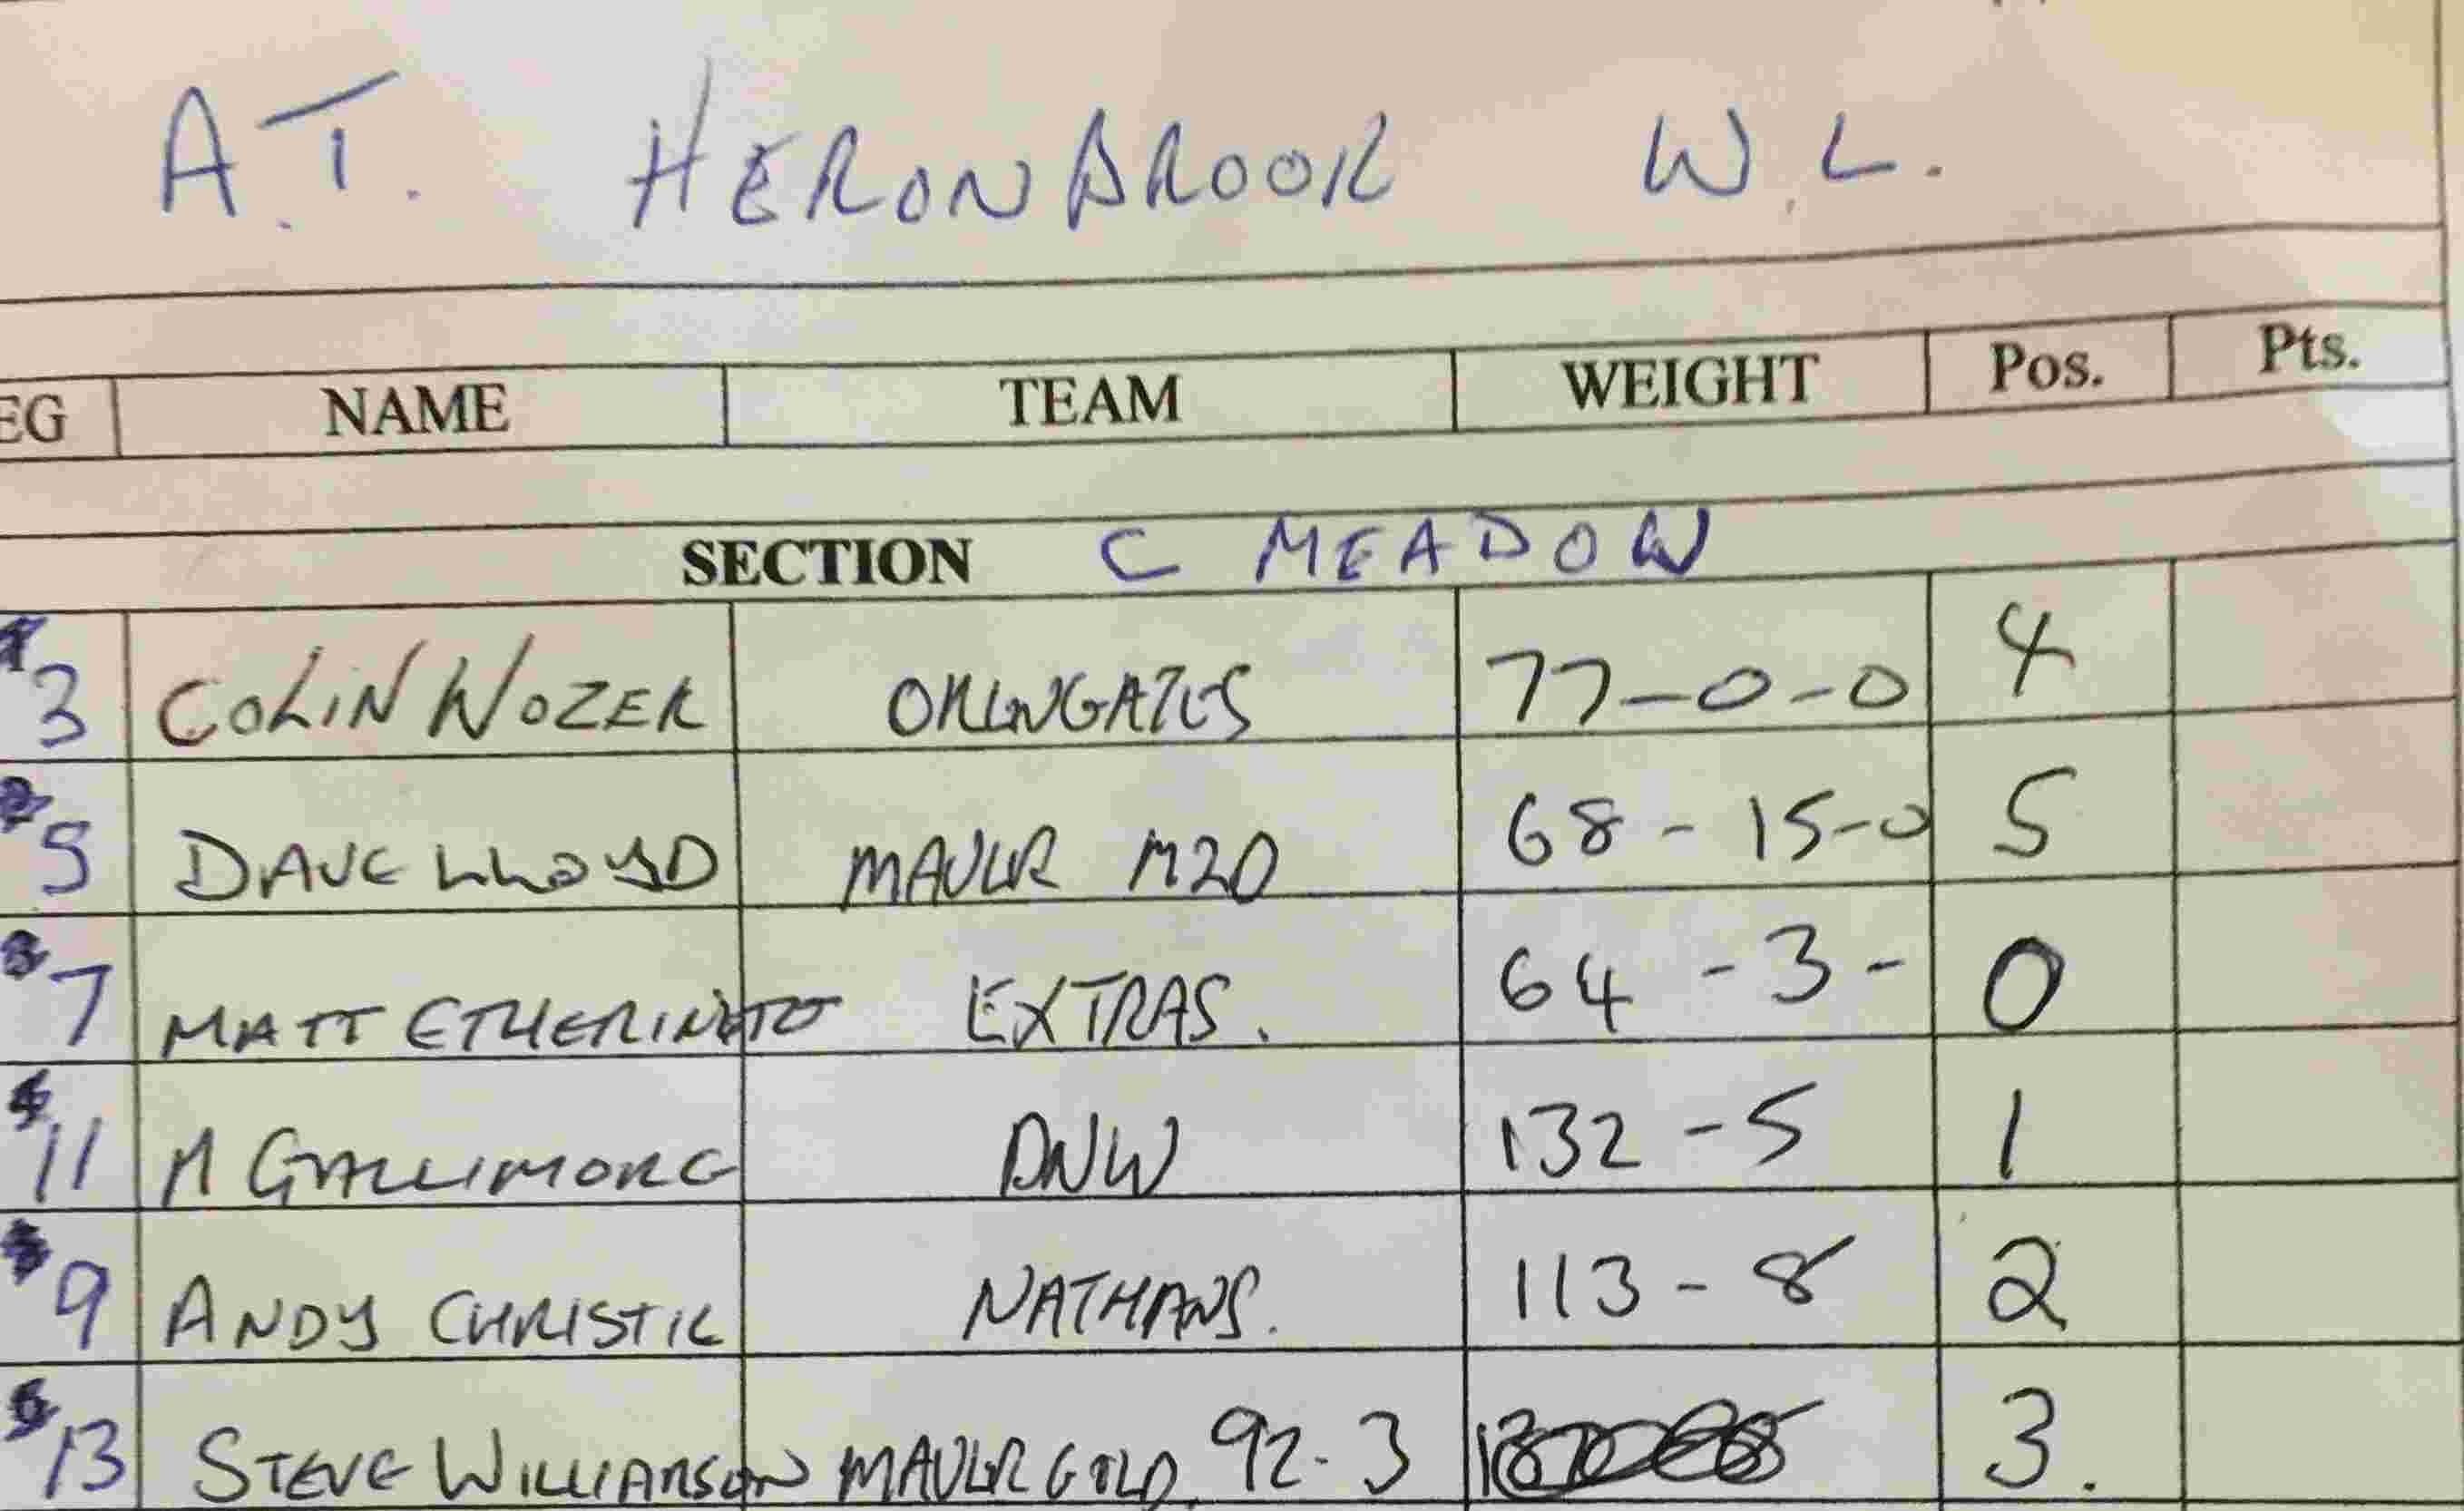 A.T. HERONBROOK W.L.
EG NAME TEAM WEIGHT Pos. Pts.
SECTION C MEADOW
3 COLIN WOZER 77-0-0 4
5 DAVE LLOYD MAVER M20 68-15-0 5
7 MATT ETHERINGTO EXTRAS. 64-3- 0
11 M GALLIMORE DNW 132-5 1
9 ANDY CHRISTIE NATHANS. 113-8 2
13 STEVE WILLIAMSON MAVER GOLD. 92-3 3.